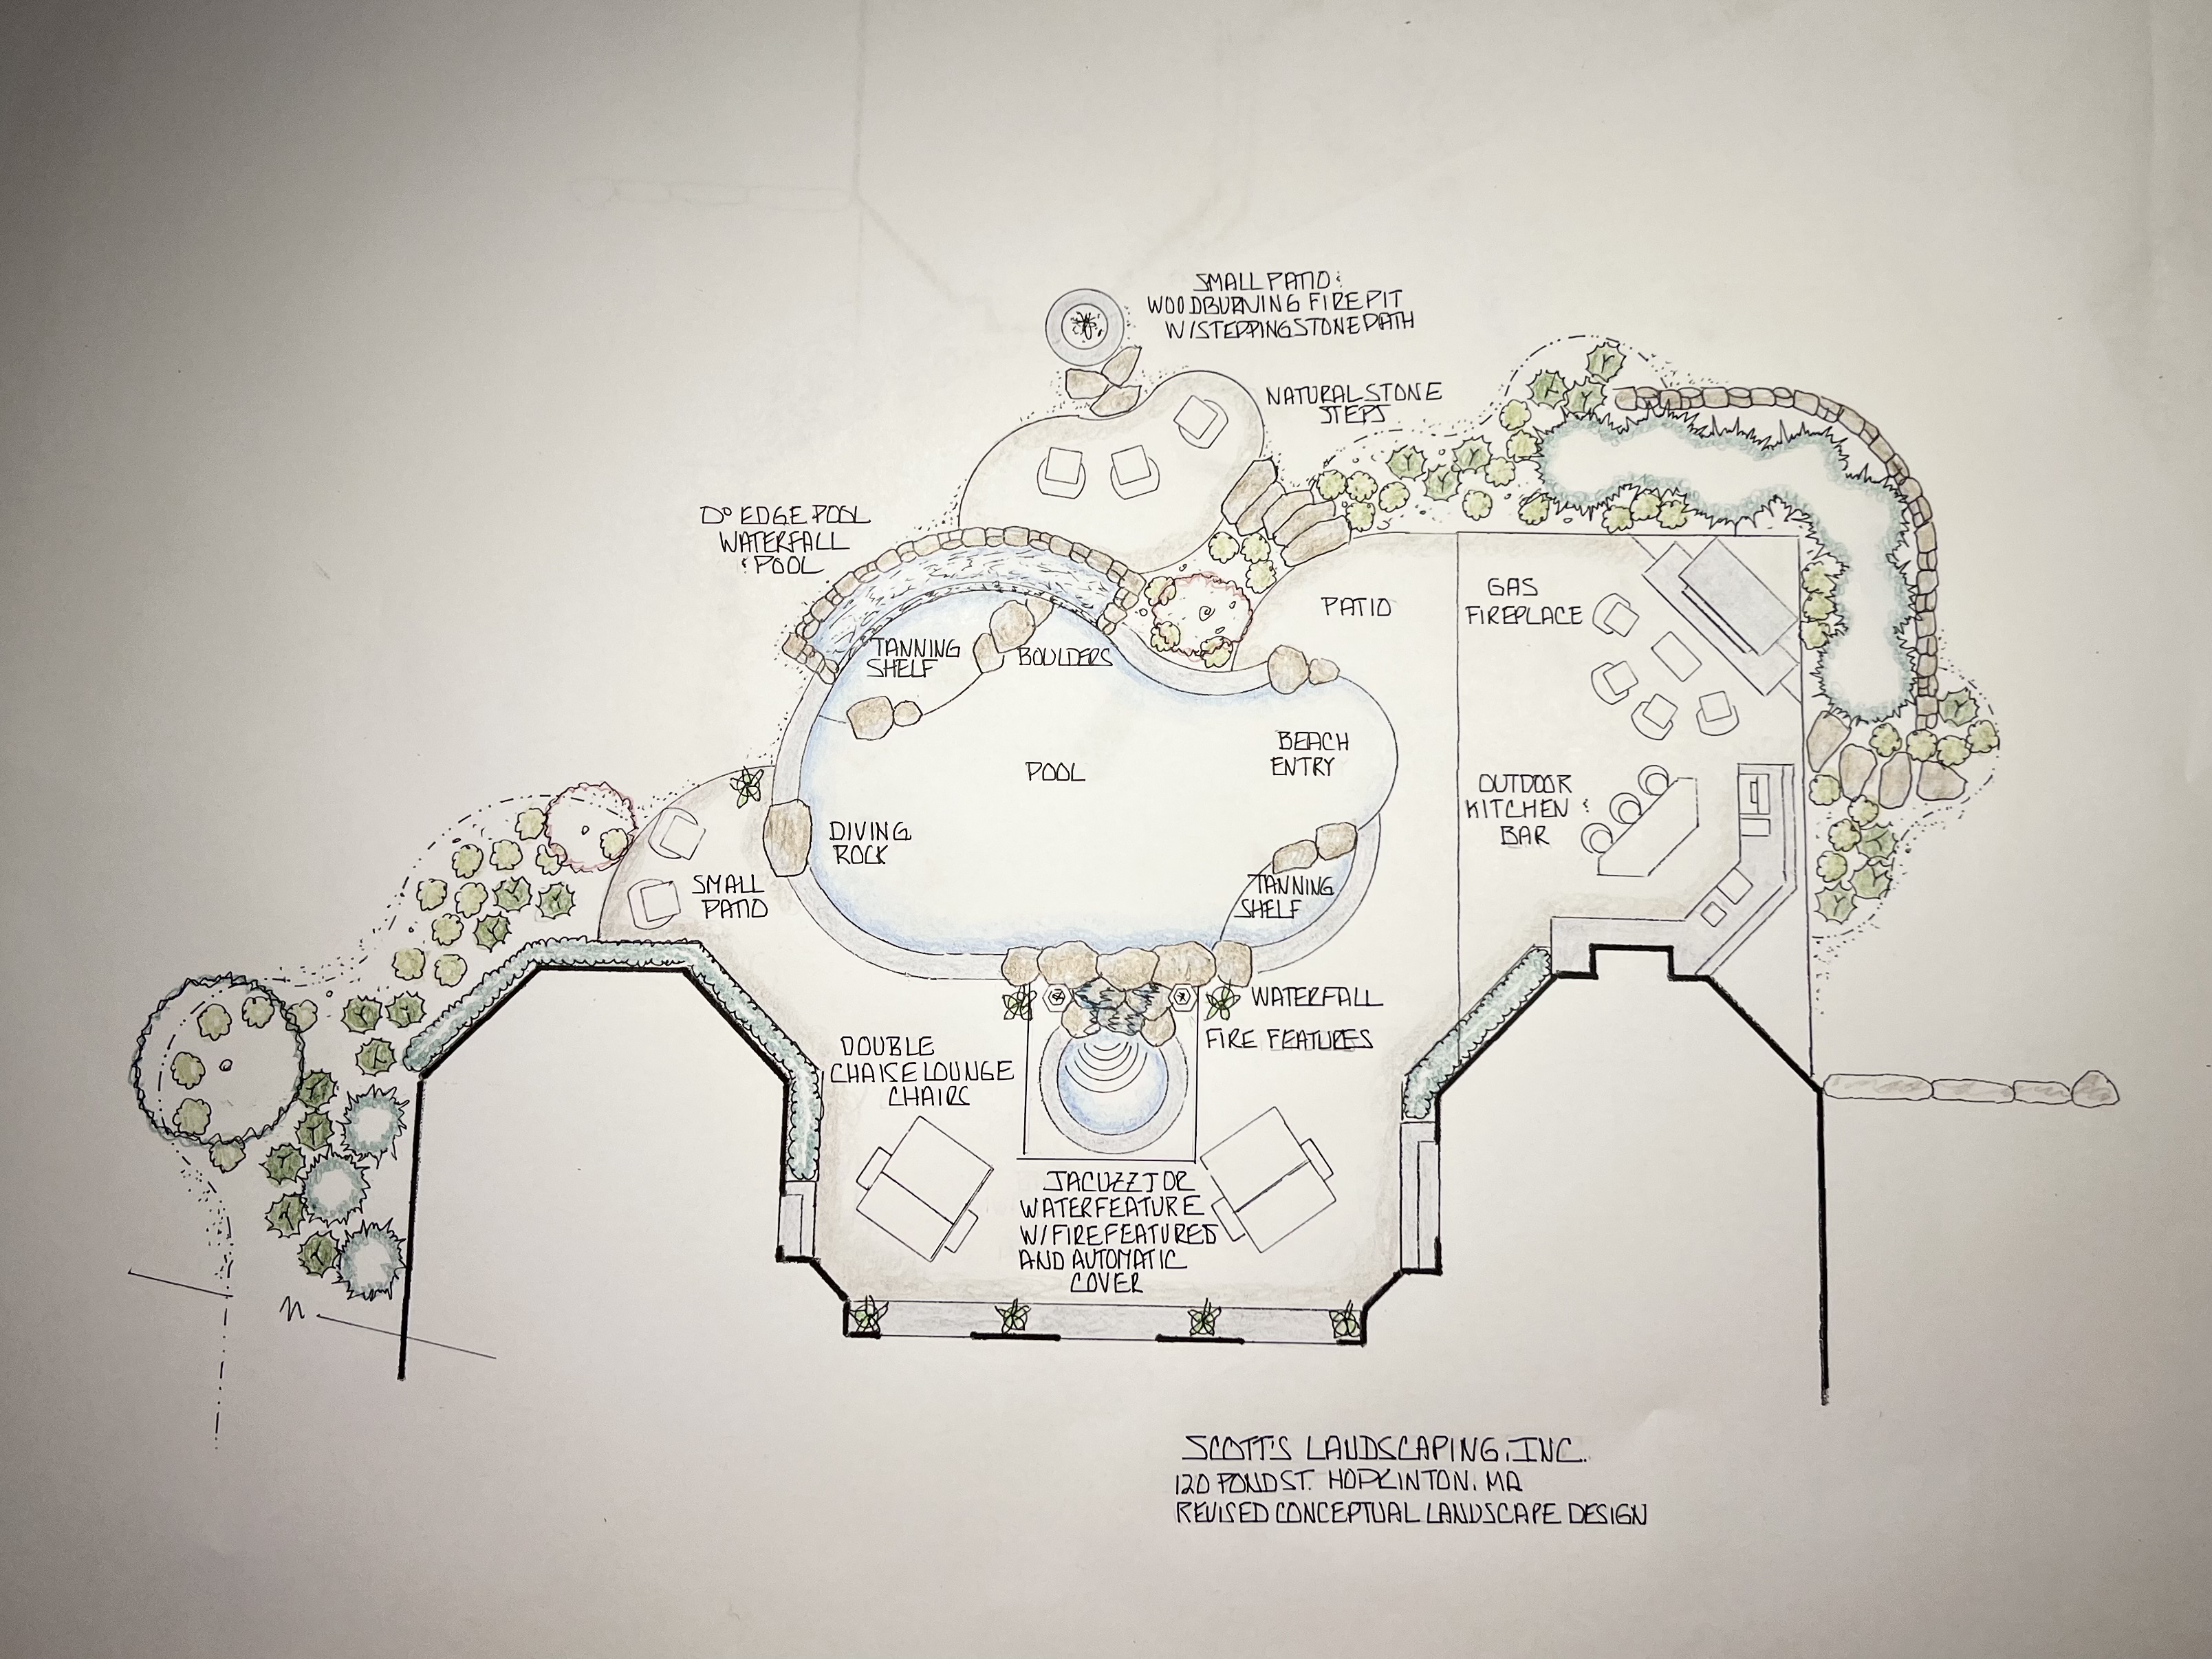 SMALL PATIO &
WOODBURNING FIRE PIT
W/STEPPING STONE PATH
NATURAL STONE
STEPS
D° EDGE POOL
WATERFALL
& POOL
TANNING
SHELF
BOULDERS
PATIO
GAS
FIREPLACE
BEACH
ENTRY
POOL
OUTDOOR
KITCHEN &
BAR
DIVING
ROCK
SMALL
PATIO
TANNING
SHELF
WATERFALL
FIRE FEATURES
DOUBLE
CHAISE LOUNGE
CHAIRS
JACUZZI OR
WATERFEATURE
W/FIRE FEATURES
AND AUTOMATIC
COVER
N
SCOTT'S LANDSCAPING, INC.
120 POND ST. HOPKINTON, MA
REVISED CONCEPTUAL LANDSCAPE DESIGN